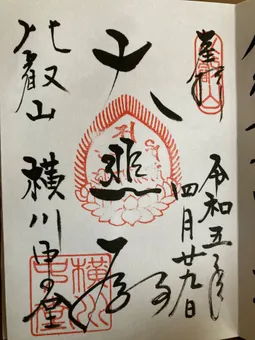 奉拝
令和五年
四月廿九日
大悲殿
比叡山 横川中堂